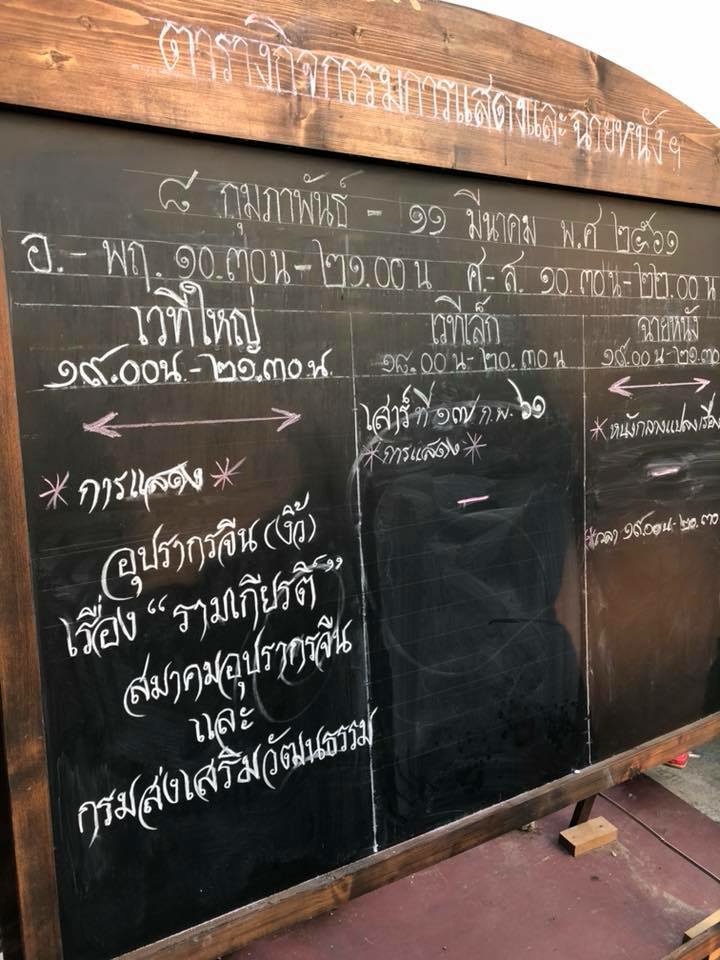 ตารางกิจกรรมการแสดงและฉายหนังฯ
๘ กุมภาพันธ์ - ๑๑ มีนาคม พ.ศ ๒๕๖๑
อ.- พฤ. ๑๐.๓๐น-๒๑.๐๐ น ศ.-ส. ๑๐.๓๐น-๒๒.๐๐ น
เวทีใหญ่
๑๙.๐๐น.-๒๑.๓๐ น.
* การแสดง *
อุปรากรจีน (งิ้ว)
เรื่อง “รามเกียรติ์”
สมาคมอุปรากรจีน
และ
กรมส่งเสริมวัฒนธรรม
เวทีเล็ก
๑๘.๐๐น-๒๐.๓๐ น
เสาร์ที่ ๑๗ ก.พ. ๖๑
* การแสดง *
-
ฉายหนัง
๑๙.๐๐น-๒๑.๓๐
* หนังกลางแปลงเรื่อง
-
*เวลา ๑๙.๐๐น-๒๐.๓๐